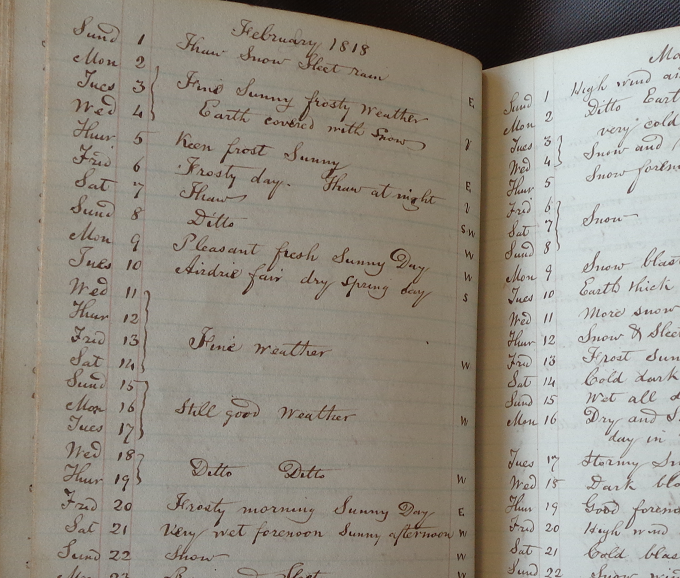 February 1818
Sund 1 Thaw Snow Sleet rain
Mon 2
Tues 3 Fine Sunny frosty Weather E
Wed 4 Earth covered with Snow
Thur 5 Keen frost Sunny
Frid 6 Frosty day. Thaw at night E
Sat 7 Thaw
Sund 8 Ditto SW
Mon 9 Pleasant fresh Sunny Day W
Tues 10 Airdrie fair dry Spring day W
Wed 11 S
Thur 12
Frid 13 Fine weather
Sat 14 W
Sund 15
Mon 16 Still good Weather W
Tues 17
Wed 18
Thur 19 Ditto Ditto W
Frid 20 Frosty morning Sunny Day E
Sat 21 Very wet forenoon Sunny afternoon W
Sund 22 Snow W
Mon 23 Sleet W
Sund 1 High wind
Mon 2 Ditto
very cold
Tues 3 Snow and
Wed 4
Thur 5 Snow
Frid 6
Sat 7 Snow
Sund 8
Mon 9 Snow
Tues 10 Earth thick
Wed 11 More snow
Thur 12 Snow &
Frid 13 Frost
Sat 14 Cold dark
Sund 15 Wet all
Mon 16 Dry and
day in
Tues 17 Stormy
Wed 18 Dark
Thur 19 Good
Frid 20 High wind
Sat 21 Cold
Sund 22 Snow